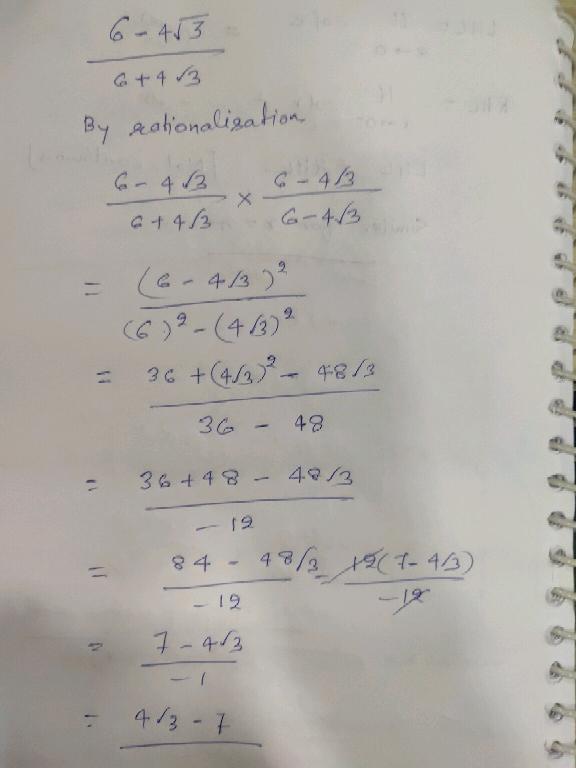 6 - 4√3
6 + 4√3
By rationalisation
6 - 4√3 × 6 - 4√3
6 + 4√3 6 - 4√3
= (6 - 4√3)²
(6)² - (4√3)²
= 36 + (4√3)² - 48√3
36 - 48
= 36 + 48 - 48√3
- 12
= 84 - 48√3 = 12(7 - 4√3)
- 12 - 12
= 7 - 4√3
- 1
= 4√3 - 7